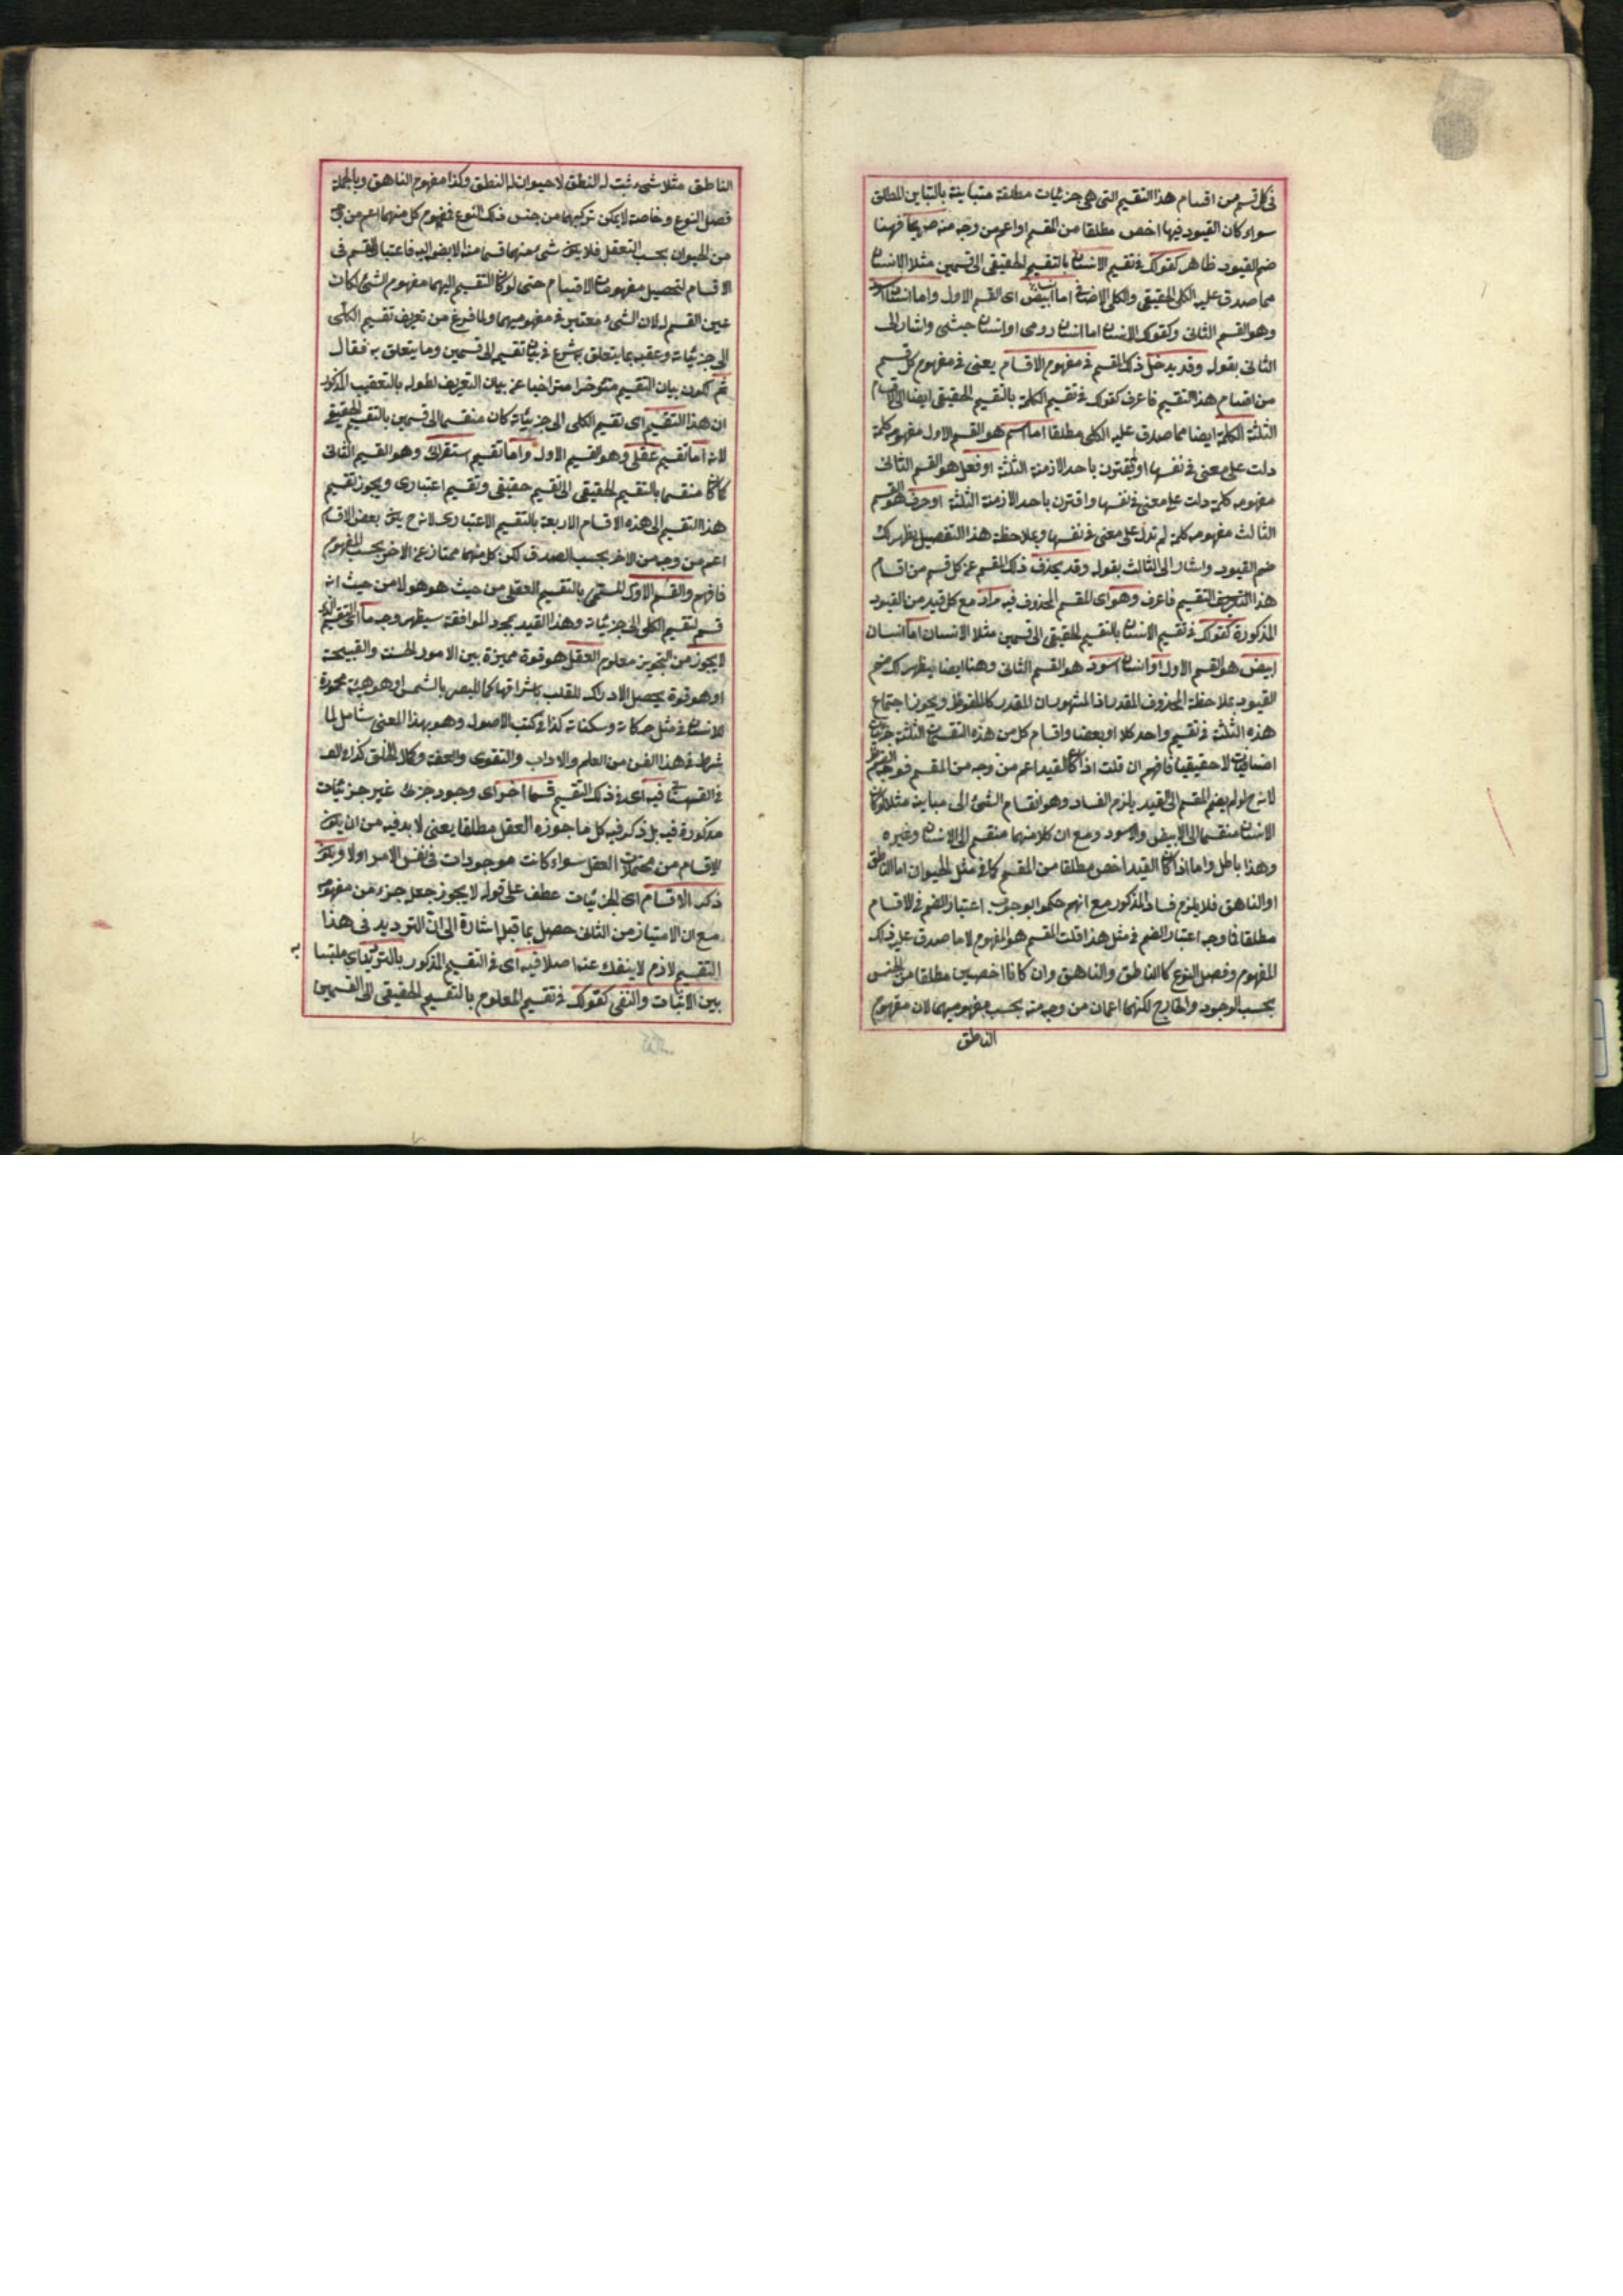 فى كل قسم من اقسام هذا التقسيم التى هى جزئيات مطلقة متباينة بالتباين المطلق
سواء كان القيود فيها اخص مطلقا من المقسم او اعم من وجه منه صريحا فهنا
ضم القيود ظاهر كقولك فى تقسيم الانسان بالتقسيم الحقيقى الى قسمين مثلا الانسان
مما صدق عليه الكلى الحقيقى والكلى الاضافى اما انسان ابيض اى القسم الاول واما انسان اسود
وهو القسم الثانى وكقولك الانسان اما انسان رومى او انسان حبشى واشار الى
الثانى بقوله وقد يدخل ذلك المقسم فى مفهوم الاقسام يعنى فى مفهوم كل قسم
من اقسام هذا التقسيم فاعرف كقولك فى تقسيم الكلمة بالتقسيم الحقيقى ايضا الى الاقسام
الثلثة الكلمة ايضا مما صدق عليه الكلى مطلقا اما اسم هو القسم الاول مفهومه كلمة
دلت على معنى فى نفسها ولم يقترن باحد الازمنة الثلثة او فعل هو القسم الثانى
مفهومه كلمة دلت على معنى فى نفسها واقترن باحد الازمنة الثلثة او حرف هو القسم
الثالث مفهومه كلمة لم تدل على معنى فى نفسها وبملاحظة هذا التفصيل يظهر لك
ضم القيود واشار الى الثالث بقوله وقد يحذف ذلك المقسم عن كل قسم من اقسام
هذا التقسيم فاعرف وهو اى المقسم المحذوف فيه مراد مع كل قيد من القيود
المذكورة كقولك فى تقسيم الانسان بالتقسيم الحقيقى الى قسمين مثلا الانسان اما انسان
ابيض هو القسم الاول او انسان اسود هو القسم الثانى وهنا ايضا يظهر لك ضم
القيود بملاحظة المحذوف المقدر اذ المشهور ان المقدر كالملفوظ ويجوز اجتماع
هذه الثلثة فى تقسيم واحد كلا او بعضا واقسام كل من هذه التقسيمات الثلثة جزئيات
اضافيات لا حقيقيا فافهم ان قلت اذا كان القيد اعم من وجه من المقسم فوجه الضم ظاهر
لانه ح لو لم يضم المقسم الى القيد يلزم الفساد وهو انقسام الشئ الى مباينه مثلا لو كان
الانسان منقسما الى الابيض والاسود ومع ان كلا منهما منقسم الى الانسان وغيره
وهذا باطل واما اذا كان القيد اخص مطلقا من المقسم كما فى مثل الحيوان اما الناطق
او الناهق فلا يلزم فساد المذكور مع انهم حكموا بوجوب اعتبار الضم فى الاقسام
مطلقا فما وجه اعتبار الضم فى مثل هذا قلت المقسم هو المفهوم لا ما صدق عليه ذلك
المفهوم وفصل النوع كالناطق والناهق وان كانا اخصين مطلقا من الجنس
بحسب الوجود والخارج لكنهما اعمان من وجه منه بحسب مفهوميهما لان مفهوم
الناطق
الناطق مثلا شىء ثبت له النطق لا حيوان له النطق وكذا مفهوم الناهق وبالجملة
فصل النوع وخاصة لا يمكن تركيبهما من جنس ذلك النوع فمفهوم كل منهما اعم من وجه
من الحيوان بحسب التعقل فلا يكون شىء منهما قسما منه الا بضم اليه فاعتبار المقسم فى
الاقسام لتحصيل مفهومات الاقسام حتى لو كان التقسيم اليهما مفهوم الشئ لكان
عين القسم له لان الشىء معتبر فى مفهوميهما ولما فرغ من تعريف تقسيم الكلى
الى جزئياته وعقبه بما يتعلق به شرع فى بيان تقسيم الى قسمين وما يتعلق به فقال
ثم لكون بيان التقسيم متوخرا متراخيا عن بيان التعريف لطوله بالتعقيب المذكور
ان هذا التقسيم اى تقسيم الكلى الى جزئياته كان منقسما الى قسمين بالتقسيم الحقيقى
لانه اما تقسيم عقلى وهو القسم الاول واما تقسيم استقرائى وهو القسم الثانى
كما كان منقسما بالتقسيم الحقيقى الى تقسيم حقيقى وتقسيم اعتبارى ويجوز تقسيم
هذا التقسيم الى هذه الاقسام الاربعة بالتقسيم الاعتبارى لانه ح يكون بعض الاقسام
اعم من وجه من الاخر بحسب الصدق لكن كل منهما ممتاز عن الاخر بحسب المفهوم
فافهم والقسم الاول المسمى بالتقسيم العقلى من حيث هو هو لا من حيث انه
قسم لتقسيم الكلى الى جزئياته وهذا القيد بمجرد الموافقة سيظهر وجه ما اى التقسيم الذى
لا يجوز من التجويز معلوم العقل هو قوة مميزة بين الامور الحسنة والقبيحة
او هو قوة يحصل الادراك للقلب باشراقها كما للبصر بالشمس او هو هيئة محمودة
للانسان فى مثل حركاته وسكناته كذا فى كتب الاصول وهو بهذا المعنى شامل لما
شرط فى هذا الفن من العلم والاداب والتقوى والعفة وكمال الخلق كذا
فى القهستانى فيه اى فى ذلك التقسيم قسما اخر اى وجود جزئى غير جزئيات
مذكورة فيه بل ذكر فيه كل ما جوزه العقل مطلقا يعنى لا بد فيه من ان يكون
الاقسام من محتملات العقل سواء كانت موجودات فى نفس الامر اولا ويكون
ذكر الاقسام اى الجزئيات عطف على قوله لا يجوز جعل جزء من مفهومه
مع ان الامتياز من الثانى حصل بما قبله اشارة الى ان الترديد فى هذا
التقسيم لازم لا ينفك عنه اصلا فيه اى فى التقسيم المذكور بالترديد اى ملتبسا به
بين الاثبات والنفى كقولك فى تقسيم المعلوم بالتقسيم الحقيقى الى القسمين